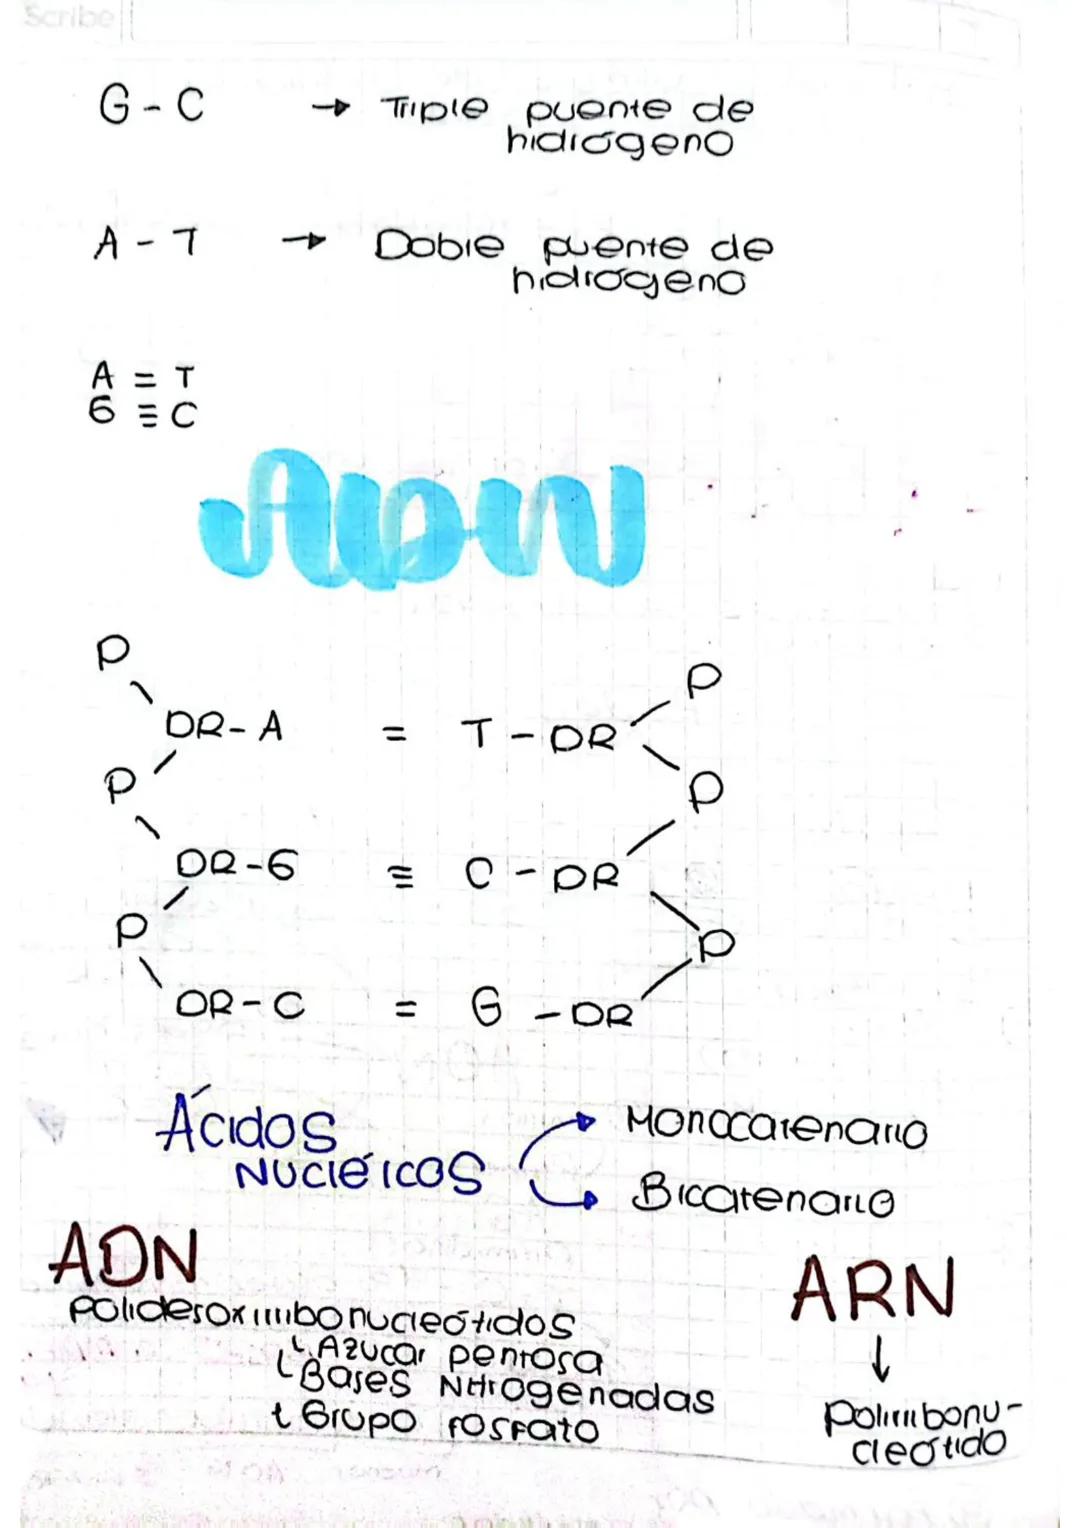 Scribe
G - C → Triple puente de
hidrógeno
A - T → Doble puente de
hidrógeno
A = T
G ≡ C
ADN
P
P
DR - A = T - DR
P
P
DR - G ≡ C - DR
P
P
DR - C = G - DR
Ácidos
Nucléicos
Monocatenario
Bicatenario
ADN
Polidesoxirribonucleótidos
Azucar pentosa
Bases Nitrogenadas
Grupo fosfato
ARN
↓
Polirribonu-
cleótido